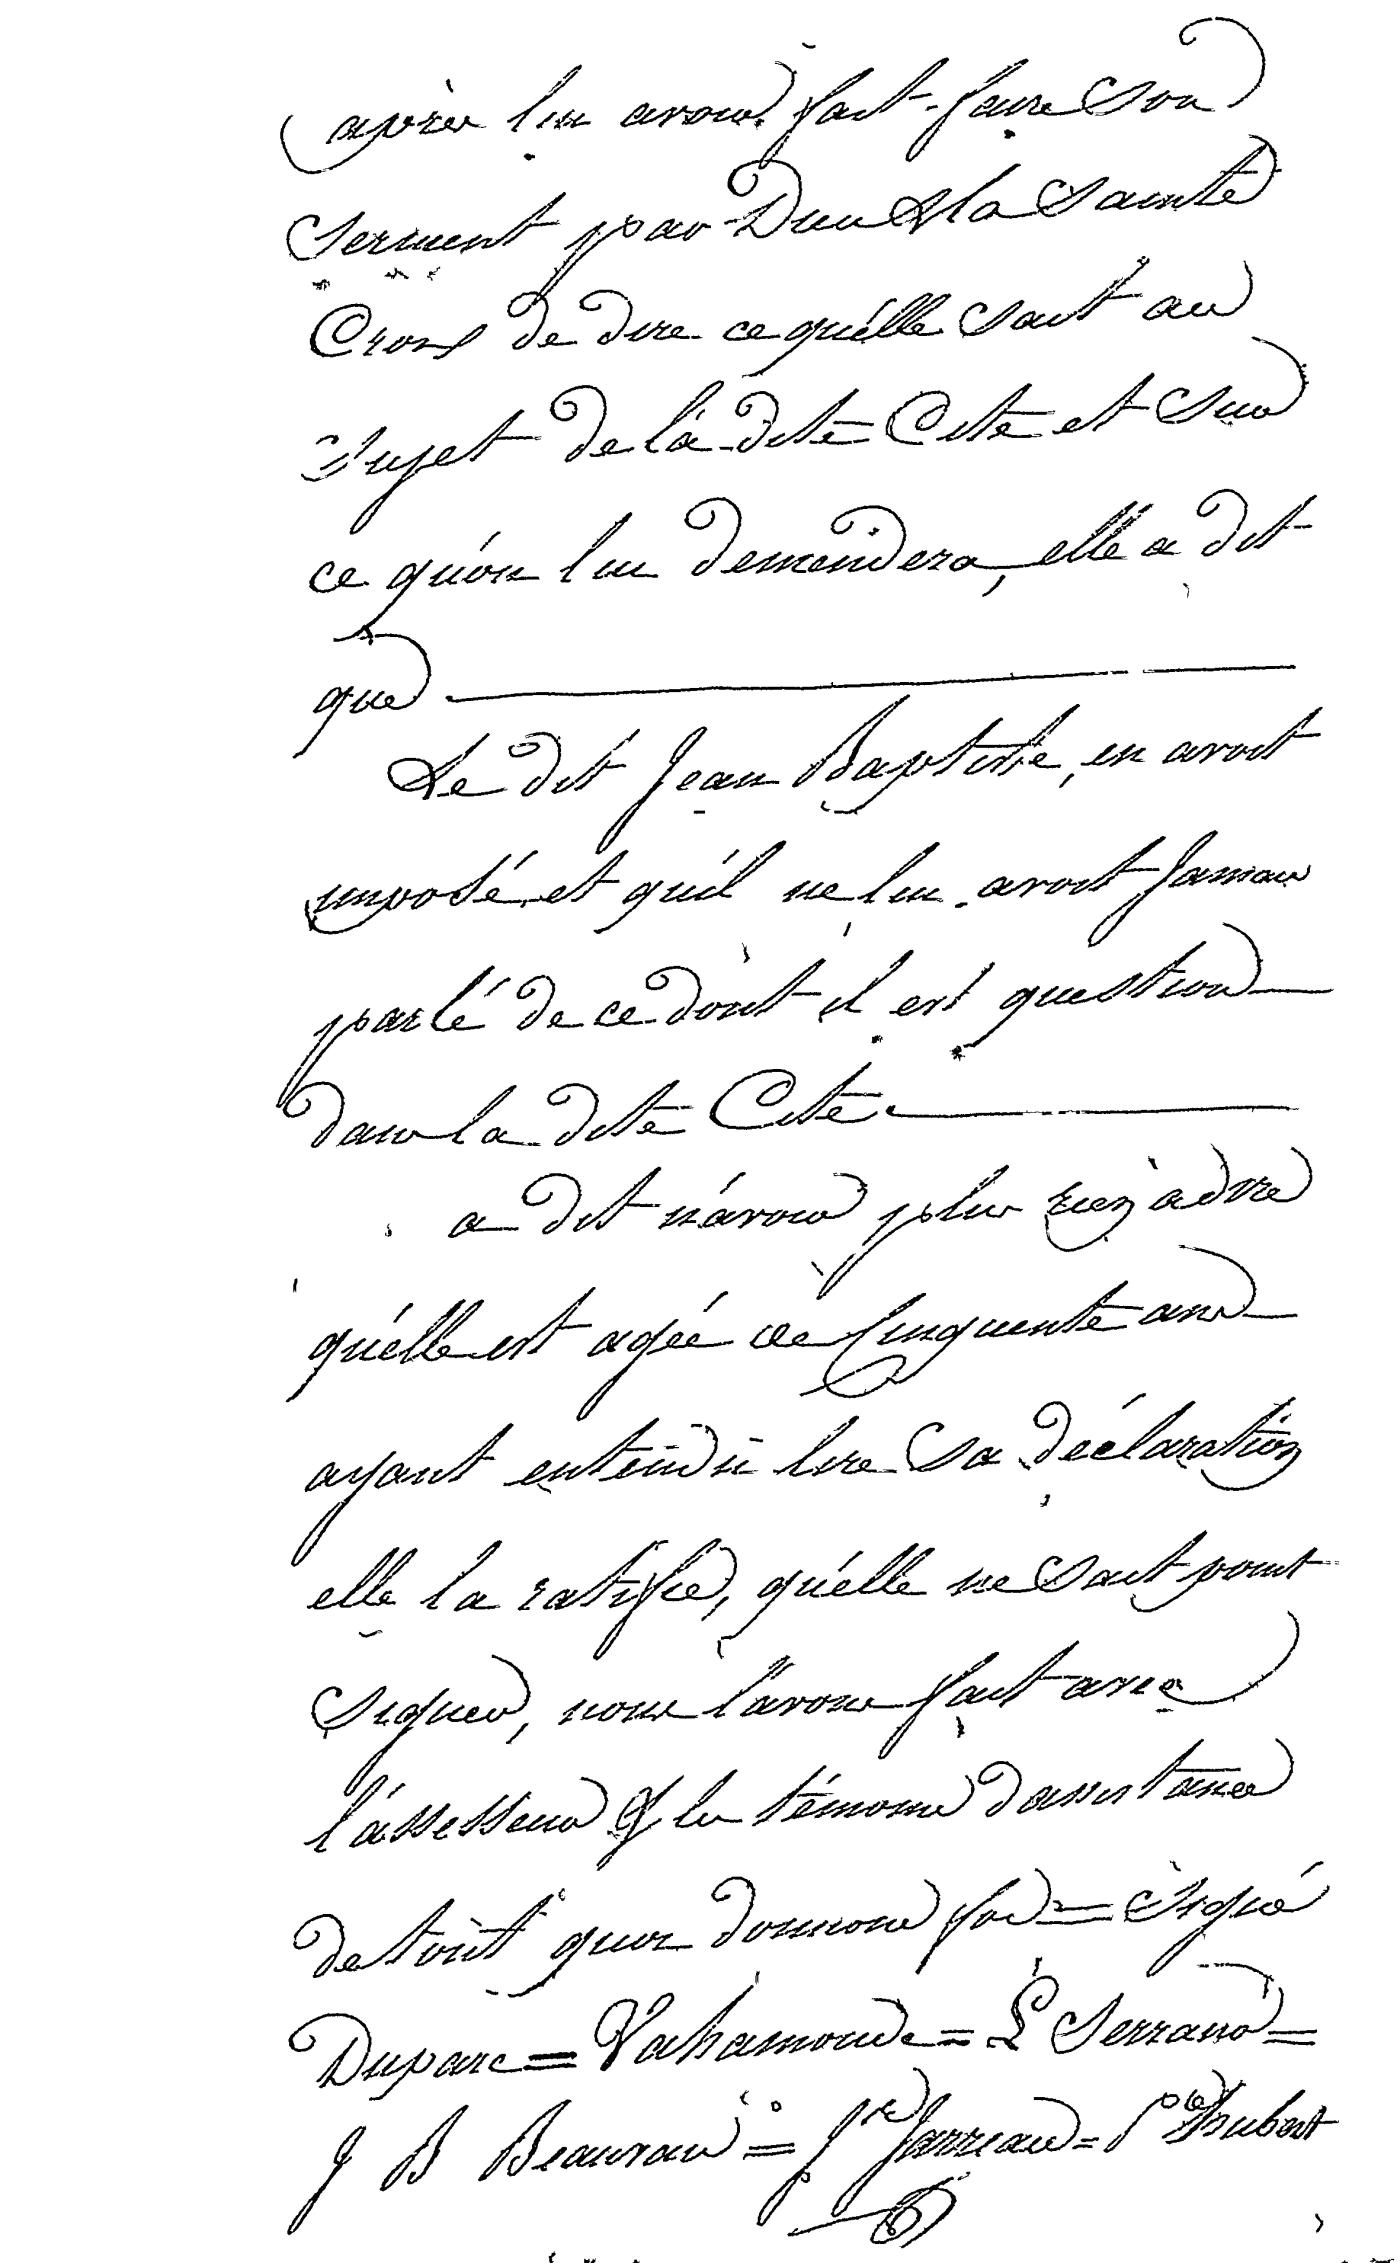 après lui avoir fait faire Son
Serment par Dieu & la Sainte
Croix de dire ce qu'elle Sait au
Sujet de la dite Cite et Sur
ce qu'on lui demendera, elle a dit
que
Le dit Jean Baptiste, en avoit
imposé et qu'il ne lui avoit Jamais
parlé de ce dont il est question
dans la dite Cite
a dit n'avoir plus rien a dire
qu'elle est agée de Cinquente ans
ayant entendu lire Sa déclaration
elle la ratifie, qu'elle ne Sait point
Signer, nous l'avons fait avec
l'assesseur & les témoins dassistance
de tout quoi donnons foi = Signé
Duparc = Vahamonde = L Serrano =
J B Beauvais = Jarreau = hubert